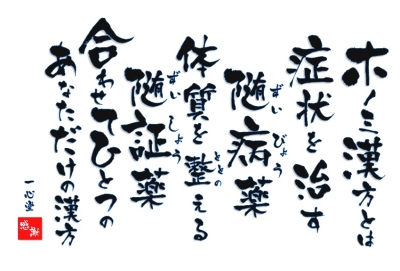 ホノミ漢方とは
症状を治す
随病薬
ずいびょう
体質を整える
ととの
随証薬
ずいしょう
合わせてひとつの
あなただけの漢方
一心堂
感謝